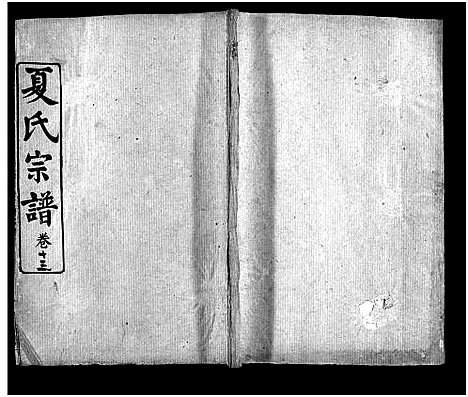 夏氏宗譜
卷十三